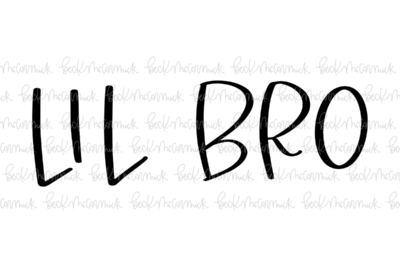 LIL BRO